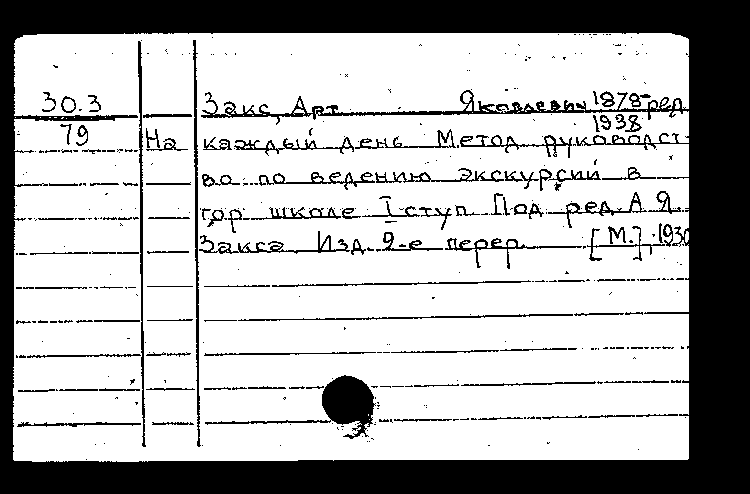 30.3 Закс, Арт Яковлевич 1878- ред
79 1938
На каждый день Метод руководст-
во по ведению экскурсий в
гор школе I ступ Под ред А Я
Закса. Изд 2-е перер. [М.], 1930